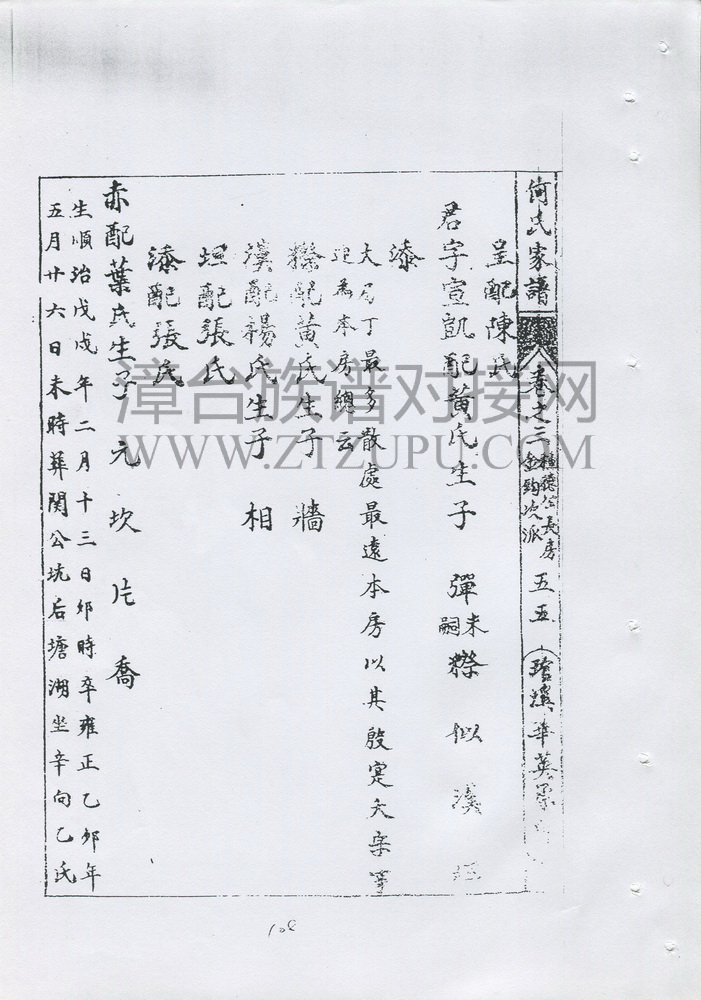 何氏家譜
卷之三
長房
金鈎次派
五五
華英
呈配陳氏
君字宣凱配黃氏生子 彈 未嗣 際 似 漢 坦
添
大房丁最多散處最遠本房以其殷寔
迎為本房總云
際配黃氏生子 牆
漢配楊氏生子 相
坦配張氏
添配張氏
赤配葉氏生子 元 坎 片 喬
生順治戊戌年二月十三日卯時卒雍正乙卯年
五月廿六日未時葬関公坑后塘湖坐辛向乙氏
漳台族谱对接网
WWW.ZTZUPU.COM
108